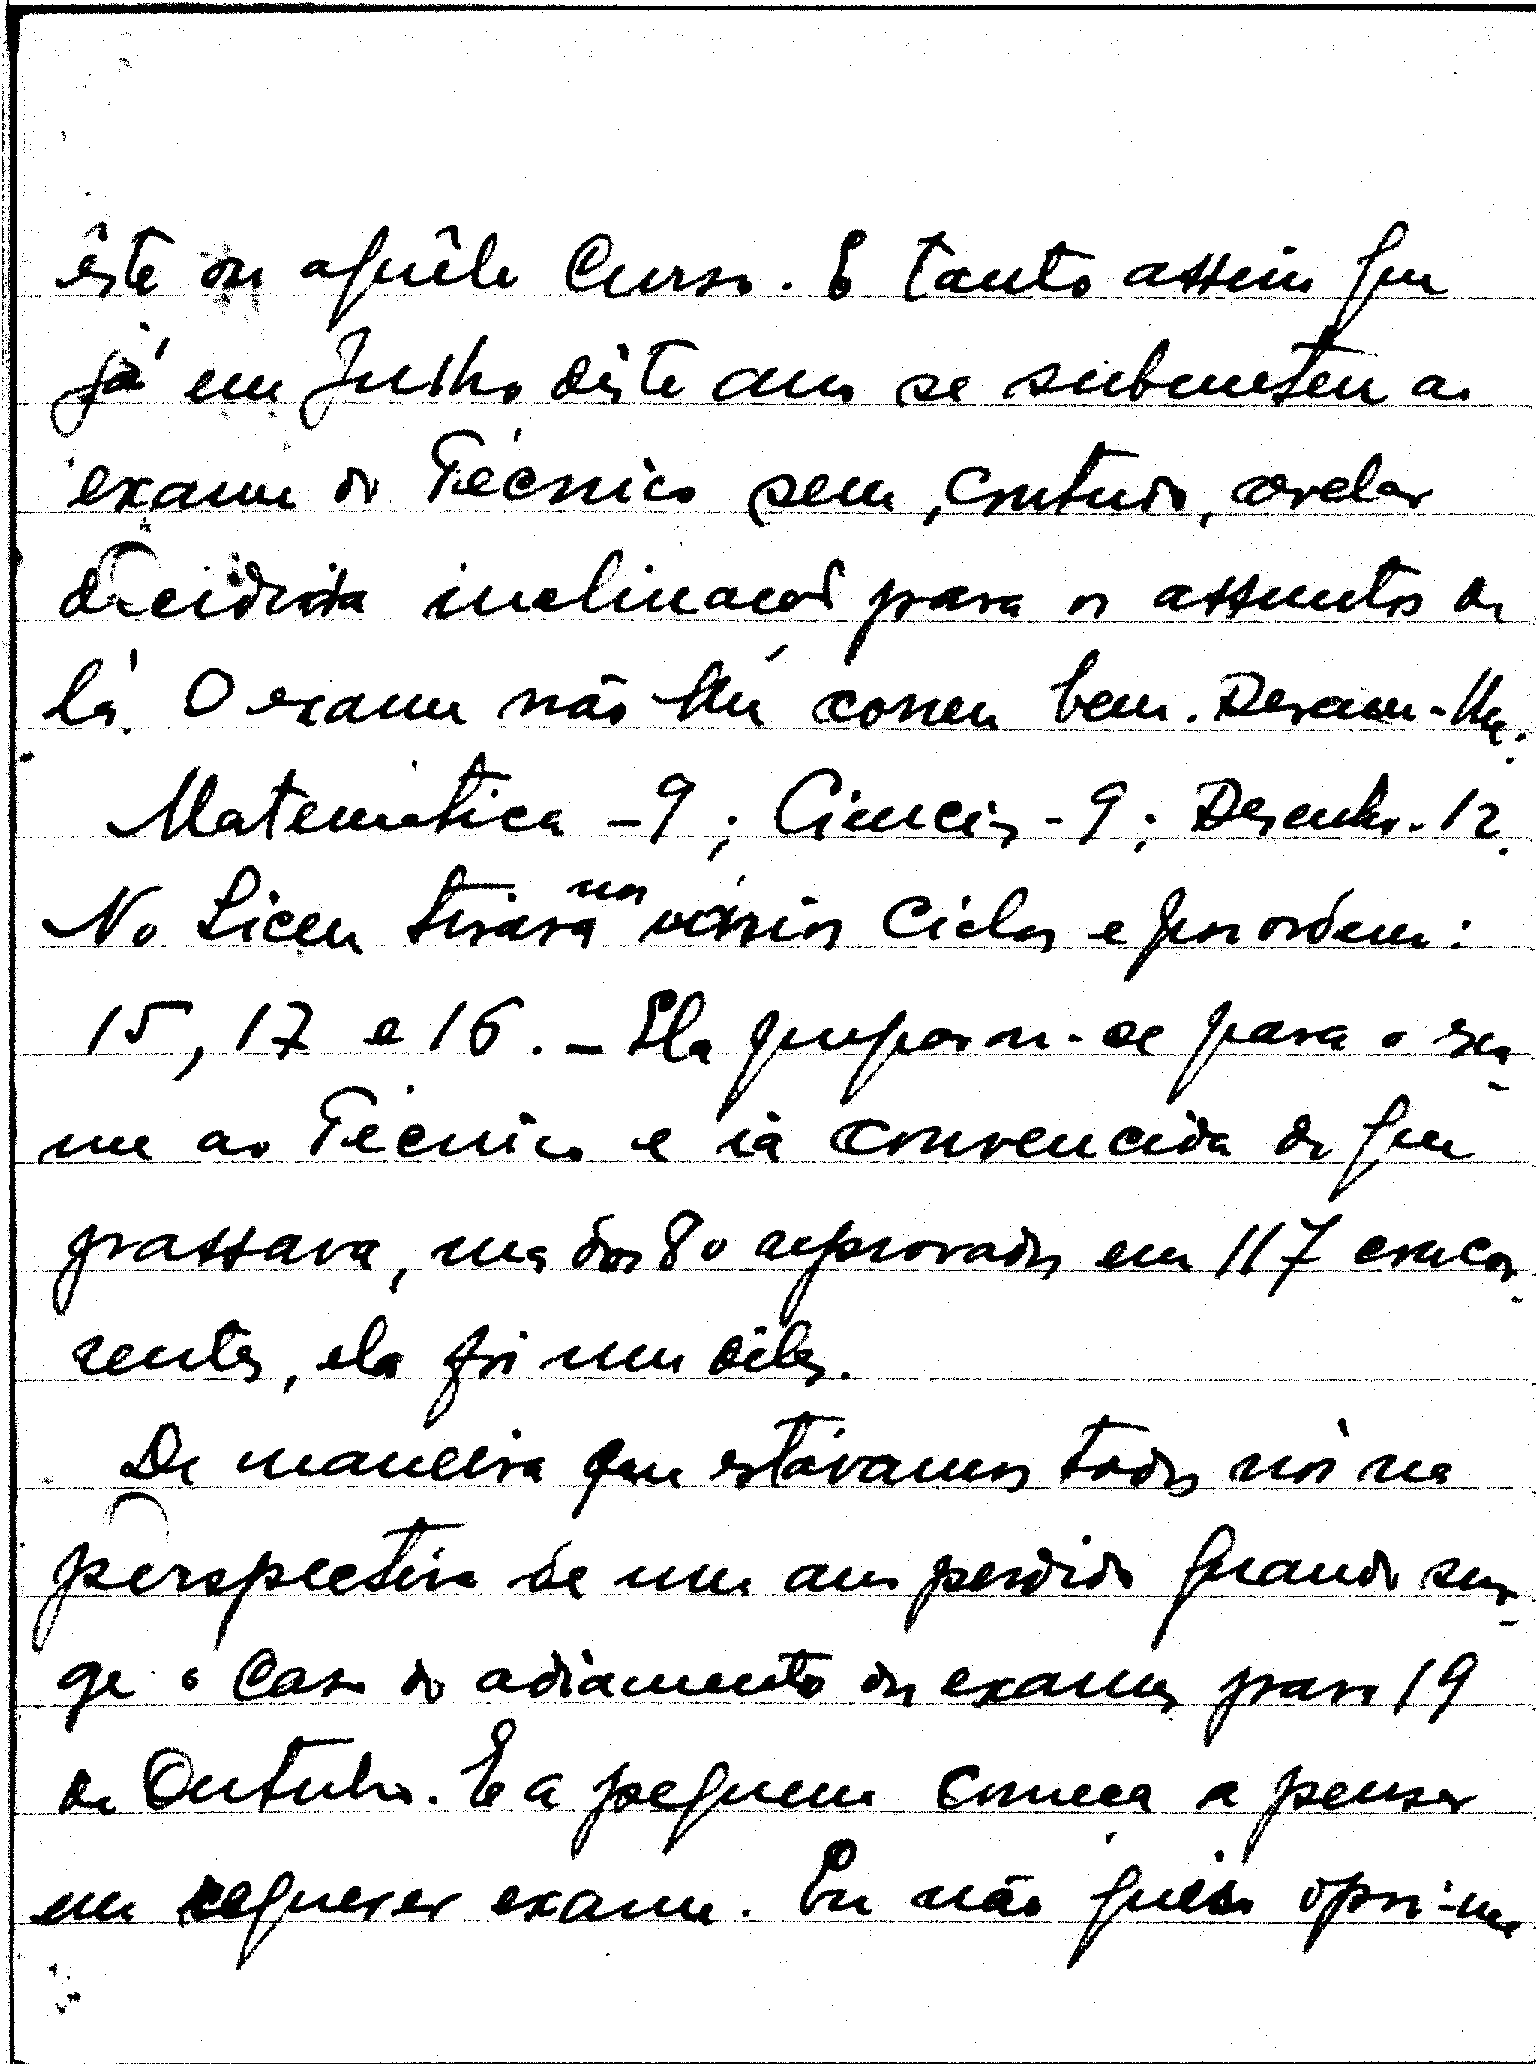 êste ou aquêle Curso. E tanto assim que
já em Julho dêste ano se submeteu ao
exame do Técnico sem, contudo, revelar
decidida inclinação para os assuntos de
lá. O exame não lhe correu bem. Deram-lhe:
Matemática - 9; Ciências - 9; Desenho - 12.
No Liceu tirara nos vários Ciclos e por ordem:
15, 17 e 16. - Ela preparou-se para o exa-
me ao Técnico e ia convencida de que
passava, mas dos 80 reprovados em 117 concor-
rentes, ela foi um dêles.
De maneira que estávamos todos nós na
perspectiva de um ano perdido quando sur-
ge o caso do adiamento dos exames para 19
de Outubro. E a pequena começa a pensar
em requerer exame. Eu não quiz opor-me